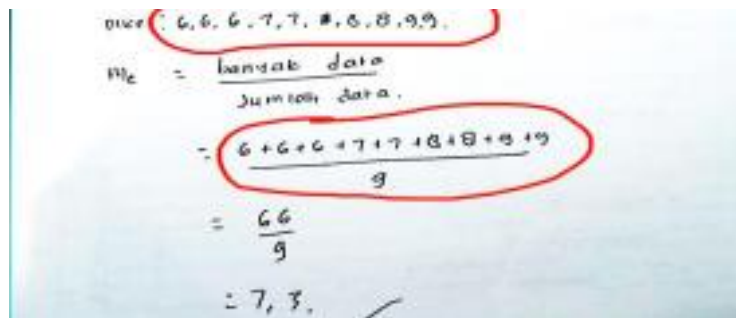 6, 6, 6, 7, 7, 8, 8, 9, 9.
Me = banyak data
Jumlah data.
= 6 + 6 + 6 + 7 + 7 + 8 + 8 + 9 + 9
9
= 66
9
= 7, 3.